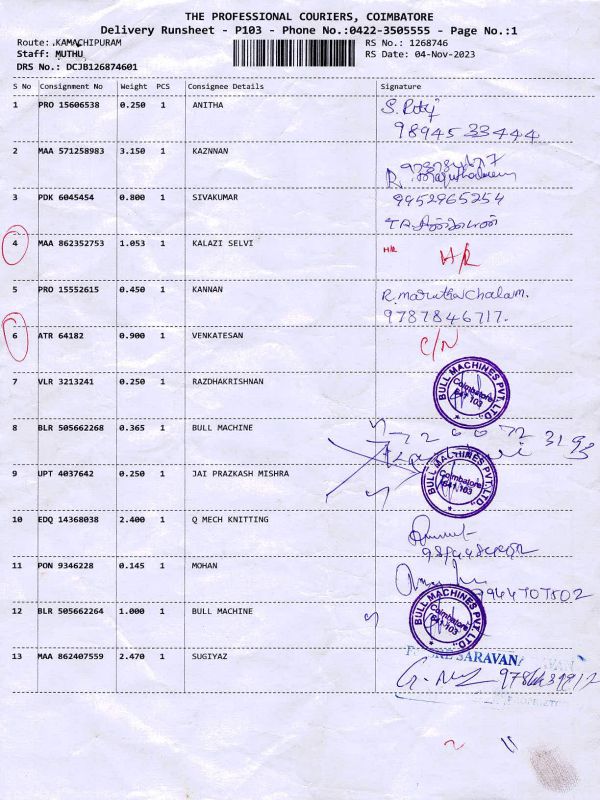 THE PROFESSIONAL COURIERS, COIMBATORE
Delivery Runsheet - P103 - Phone No.:0422-3505555 - Page No.:1
Route: KAMACHIPURAM RS No.: 1268746
Staff: MUTHU RS Date: 04-Nov-2023
DRS No.: DCJB126874601
S No Consignment No Weight PCS Consignee Details Signature
1 PRO 15606538 0.250 1 ANITHA
9894533444
2 MAA 571258983 3.150 1 KAZNNAN
3 PDK 6045454 0.800 1 SIVAKUMAR 9952965254
4 MAA 862352753 1.053 1 KALAZI SELVI H/R H/R
5 PRO 15552615 0.450 1 KANNAN R. maruthachalam.
9787846717.
6 ATR 64182 0.900 1 VENKATESAN C/N
7 VLR 3213241 0.250 1 RAZDHAKRISHNAN
BULL MACHINES PVT. LTD.,
Coimbatore
641 103
8 BLR 505662268 0.365 1 BULL MACHINE
9 UPT 4037642 0.250 1 JAI PRAZKASH MISHRA
BULL MACHINES PVT. LTD.,
Coimbatore
641 103
10 EDQ 14368038 2.400 1 Q MECH KNITTING
11 PON 9346228 0.145 1 MOHAN
12 BLR 505662264 1.000 1 BULL MACHINE
BULL MACHINES PVT. LTD.,
Coimbatore
641 103
13 MAA 862407559 2.470 1 SUGIYAZ
2 11